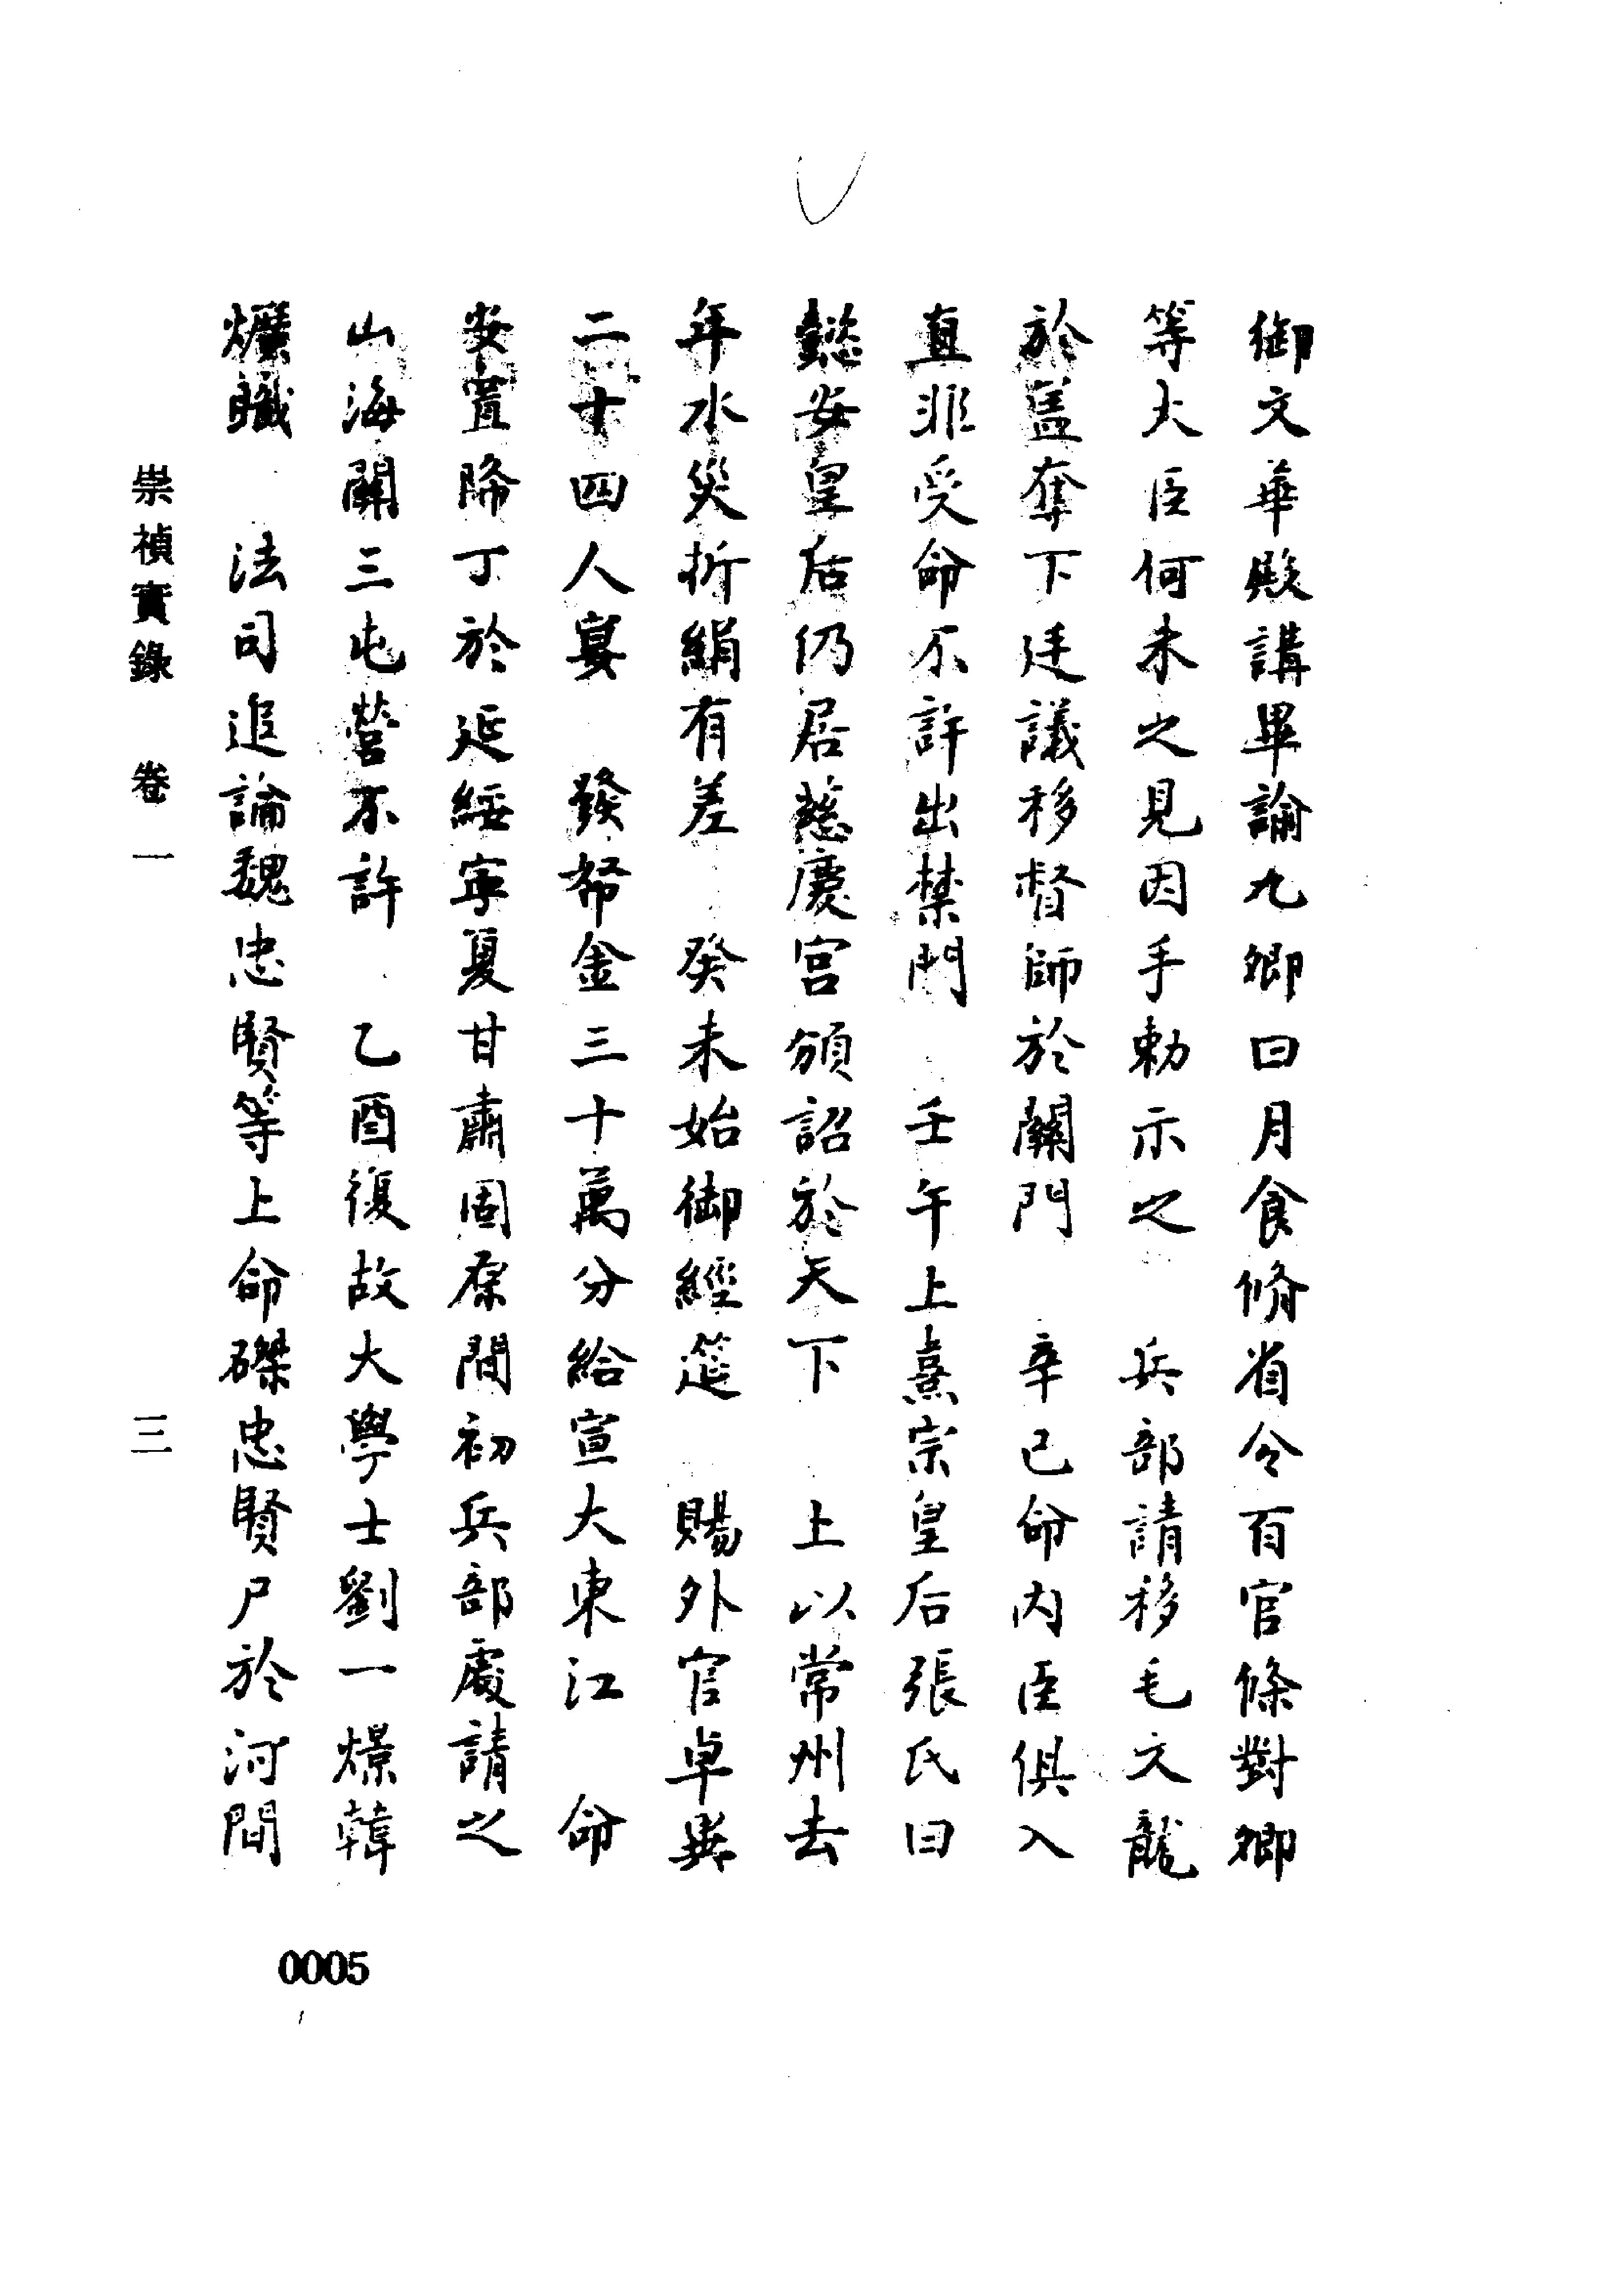 御文華殿講畢論九卿曰月食脩省令百官條對卿
等大臣何未之見因手勅示之　兵部請移毛文龍
於蓋奪下廷議移督師於關門　辛已命內臣俱入
直非受命不許出禁門　壬午上熹宗皇后張氏曰
懿安皇后仍居慈慶宮頒詔於天下　上以常州去
年水災折絹有差　癸未始御經筵　賜外官卓異
二十四人宴　發帑金三十萬分給宣大東江　命
安置降丁於延綏寧夏甘肅固原間初兵部處請之
山海關三屯營不許　乙酉復故大學士劉一燝韓
爌職　法司追論魏忠賢等上命磔忠賢尸於河間
崇禎實錄　卷一　三
0005